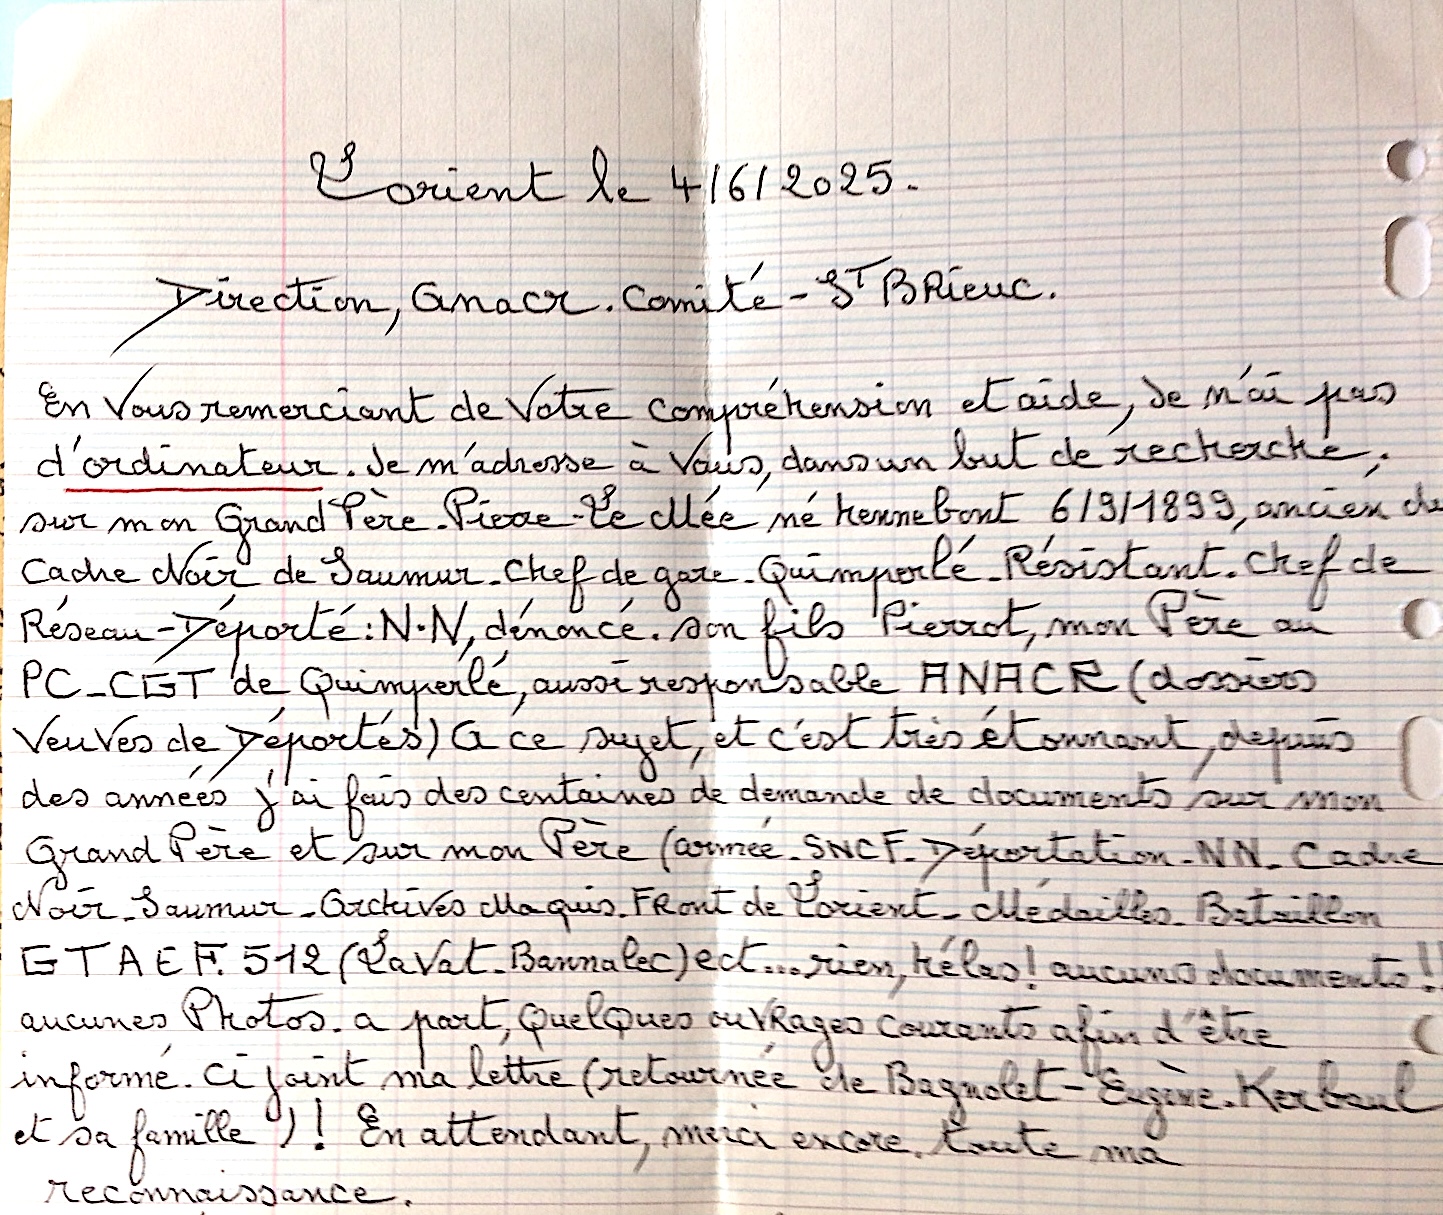 Lorient le 4/6/2025.
Direction, Anacr. Comité - St BRieuc.
En Vous remerciant de Votre compréhension et aide, Je n'ai pas
d'ordinateur. Je m'adresse à Vous, dans un but de recherche,
sur mon Grand Père. Pierre - Le Mée né hennebont 6/9/1899, ancien du
Cadre Noir de Saumur. Chef de gare. Quimperlé. Résistant. Chef de
Réseau - Déporté : N.N, dénoncé. son fils Pierrot, mon Père au
PC - CGT de Quimperlé, aussi responsable ANACR (dossiers
Veuves de Déportés) A ce sujet, et c'est très étonnant, depuis
des années j'ai fais des centaines de demande de documents sur mon
Grand Père et sur mon Père (armée. SNCF. Déportation - NN - Cadre
Noir - Saumur - Archives Maquis. FRont de Lorient - Médailles. Bataillon
GTAEF. 512 (LaVat. Bannalec) ect... rien, hélas ! aucuns documents !!
aucunes Photos. a part, Quelques ouvRages courants afin d'être
informé. Ci joint ma lettre (retournée de Bagnolet - Eugène. Kerbaul
et sa famille) ! En attendant, merci encore. toute ma
reconnaissance.